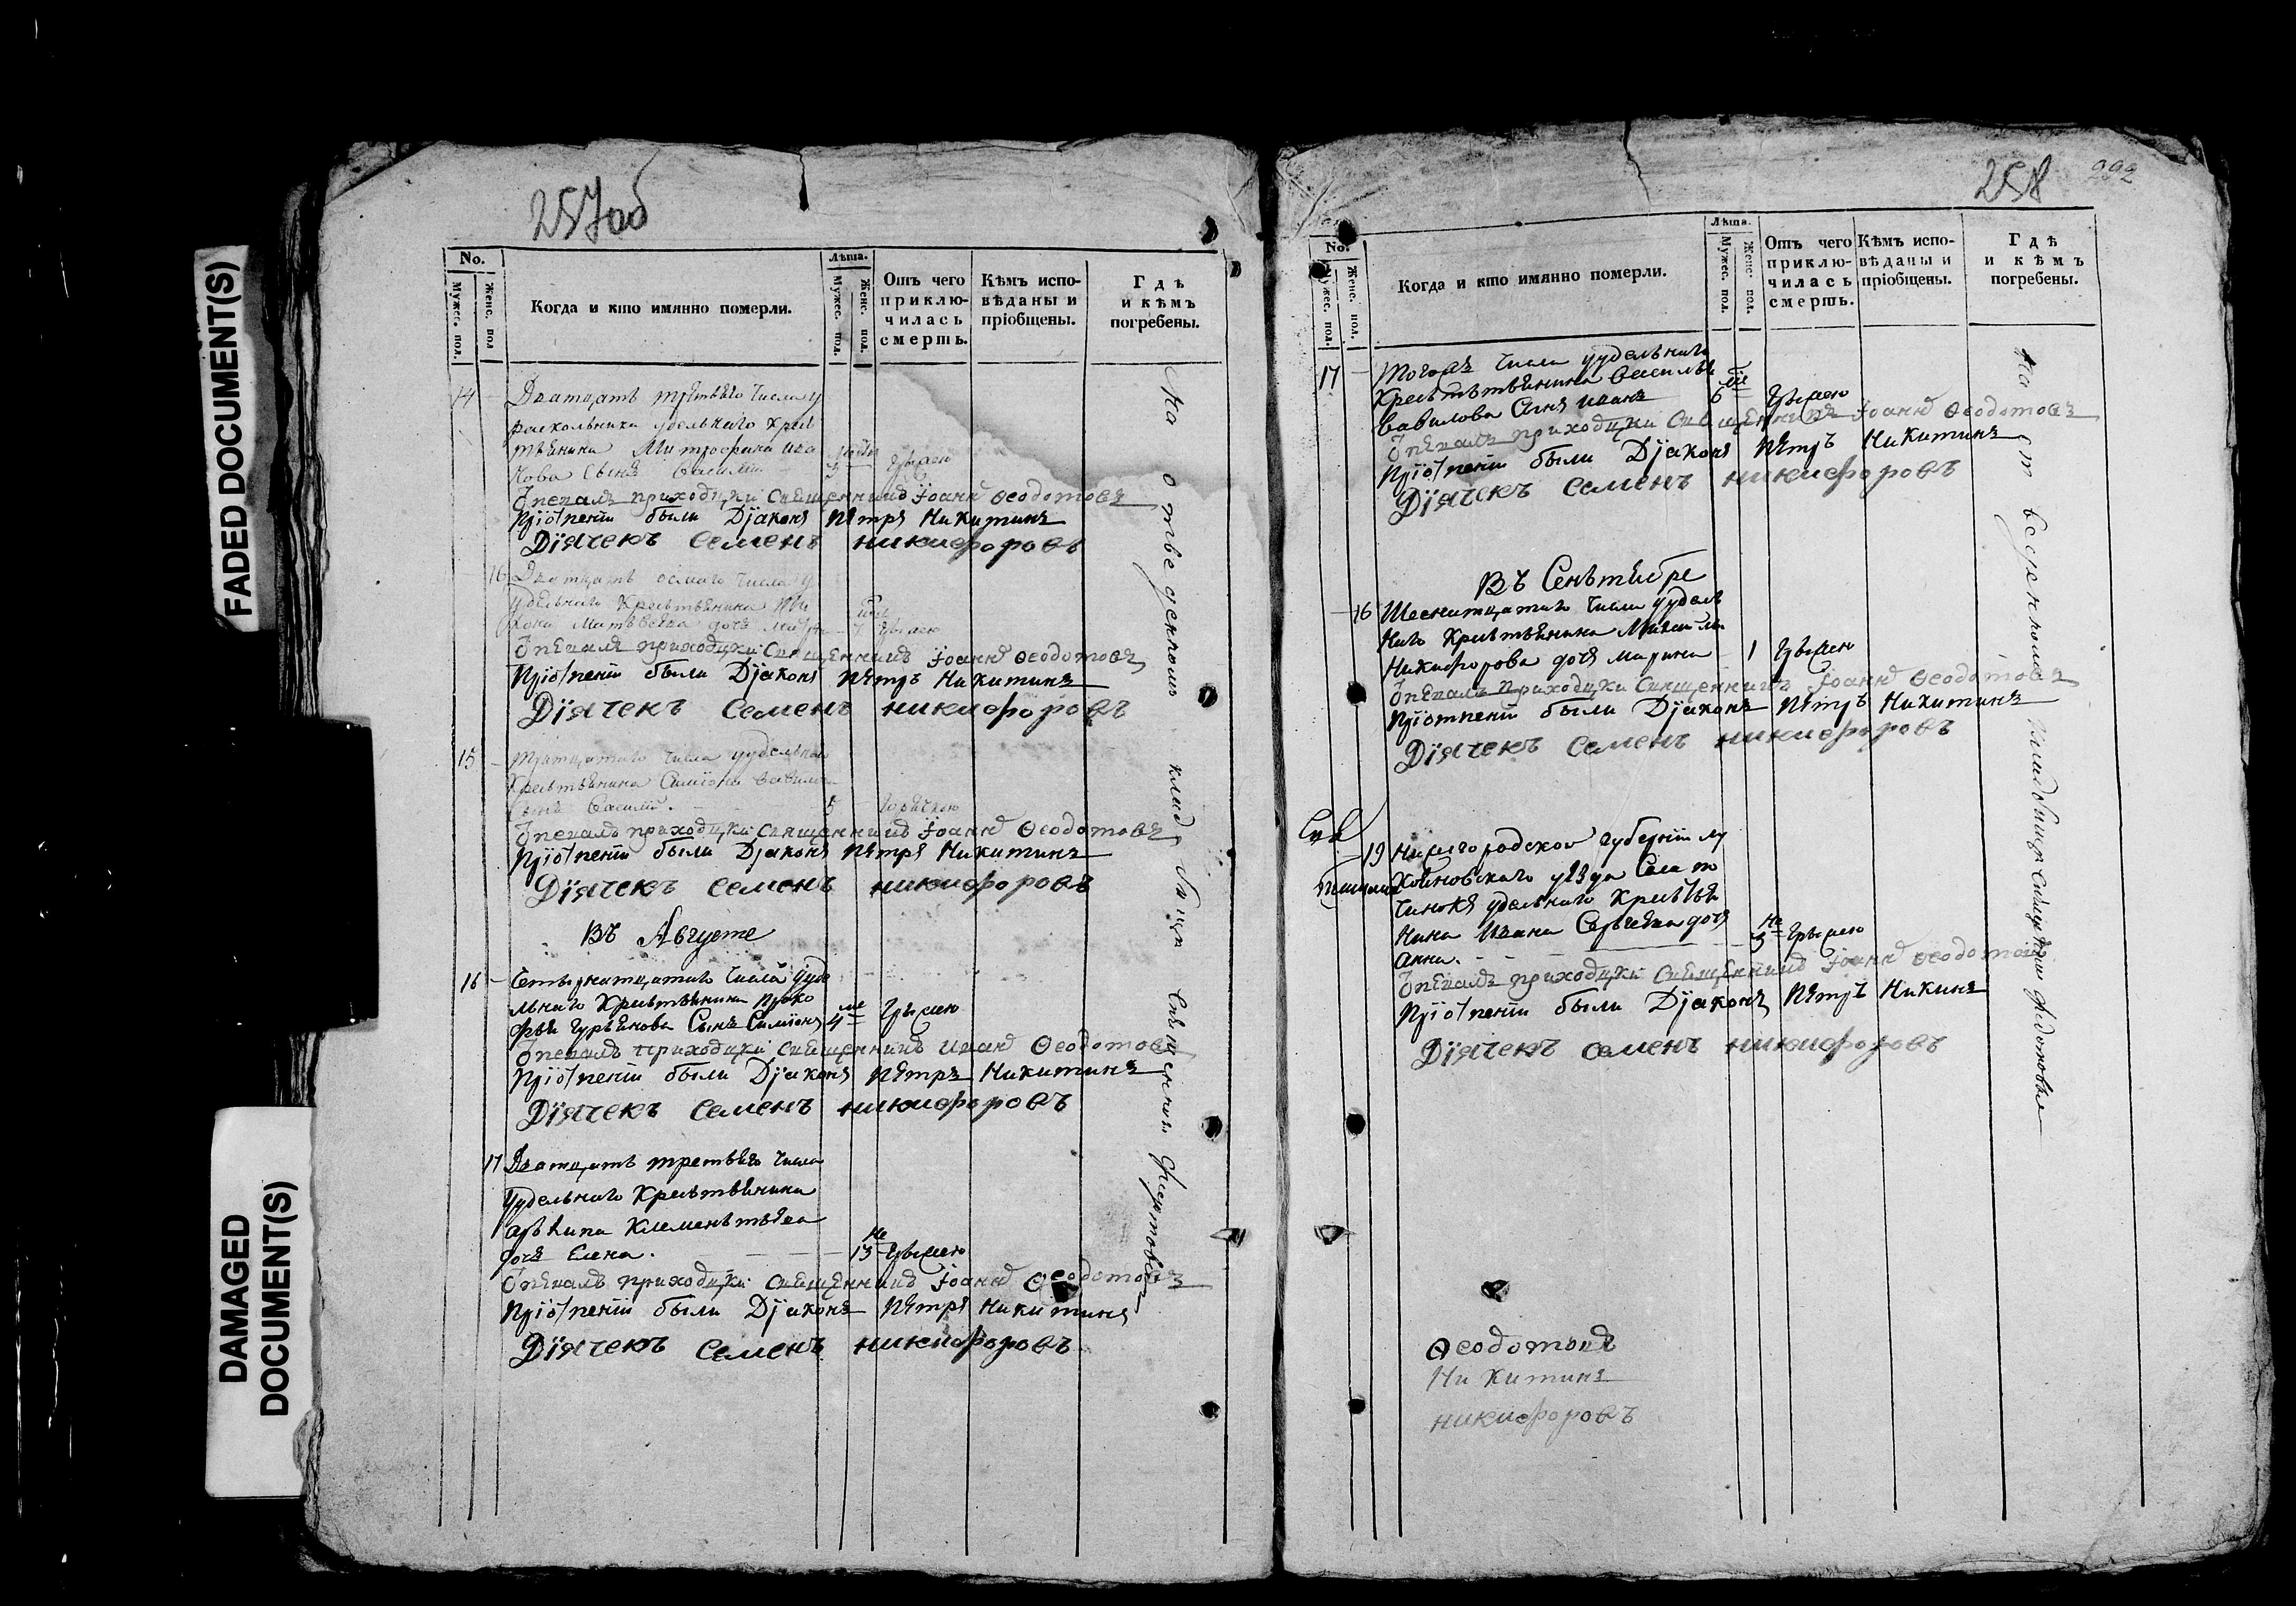 FADED DOCUMENT(S)
DAMAGED
DOCUMENT(S)
257об
No.
Мужес. пол.
Женс. пол
Когда и кто имянно померли.
Лѣта.
Мужес. пол.
Женс. пол.
Отъ чего
приклю-
чилась
смерть.
Кѣмъ испо-
вѣданы и
пріобщены.
Гдѣ
и кѣмъ
погребены.
14 Дватцать третьяго числа у
раскольника удельнаго крес
тьянина Митрофана Ива
нова сынъ Василій
Отпевалъ приходцки священникъ Іоаннъ Ѳеодотовъ
При отпеніи были Діаконъ Петръ Никитинъ
Дїячекъ Семенъ Никифоровъ
16 Дватцать осмаго числа у
удельнаго Крестьянина
Отпевалъ приходцки священникъ Іоаннъ Ѳеодотовъ
При отпеніи были Діаконъ Петръ Никитинъ
Дїячекъ Семенъ Никифоровъ
15 Тритцатаго числа уудельнаго
Крестьянина Симіона Вавилова
Сынъ Василій. 5 горячкою
Отпевалъ приходцки священникъ Іоаннъ Ѳеодотовъ
При отпеніи были Діаконъ Петръ Никитинъ
Дїячекъ Семенъ Никифоровъ
Въ Августе
16 Четырнатцатаго числа ууде
льнаго Крестьянина Проко
фья Гурьянова Сынъ Симіонъ 4 ме
Отпевалъ приходцки священникъ Иоанъ Ѳеодотовъ
При отпеніи были Діаконъ Петръ Никитинъ
Дїячекъ Семенъ Никифоровъ
17 Дватцать третьяго числа
Уудельнаго Крестьянина
Архипа Клементьева
дочь Елена. 13 не
Отпевалъ приходцки священникъ Іоаннъ Ѳеодотовъ
При отпеніи были Діаконъ Петръ Никитинъ
Дїячекъ Семенъ Никифоровъ
На отведенномъ кладбищи Священикъ Федотовъ
258
292
No.
Мужес. пол.
Женс. пол.
Когда и кто имянно померли.
Лѣта.
Мужес. пол.
Женс. пол.
Отъ чего
приклю-
чилась
смерть.
Кѣмъ испо-
вѣданы и
пріобщены.
Гдѣ
и кѣмъ
погребены.
17 Тогожъ числа уудельнаго
Крестьянина Василья
Вавилова Сынъ Иванъ 6 ме
Отпевалъ приходцки священникъ Іоаннъ Ѳеодотовъ
При отпеніи были Діаконъ Петръ Никитинъ
Дїячекъ Семенъ Никифоровъ
Въ Сенътябре
16 Шеснатцатаго числа уудель
наго Крестьянина Михайла
Никифорова дочь Марина 1
Отпевалъ приходцки священникъ Іоаннъ Ѳеодотовъ
При отпеніи были Діаконъ Петръ Никитинъ
Дїячекъ Семенъ Никифоровъ
19 Нижегородской губерніи Лу
кояновскаго уѣзда Села
удельнаго Крестья
нина Ивана Сергеева дочь
Анна. 3 не
Отпевалъ приходцки священникъ Іоаннъ Ѳеодотовъ
При отпеніи были Діаконъ Петръ Никинъ
Дїячекъ Семенъ Никифоровъ
На отведенномъ Кладбищи Священникъ Федотовъ
Ѳеодотовъ
Никитинъ
Никифоровъ